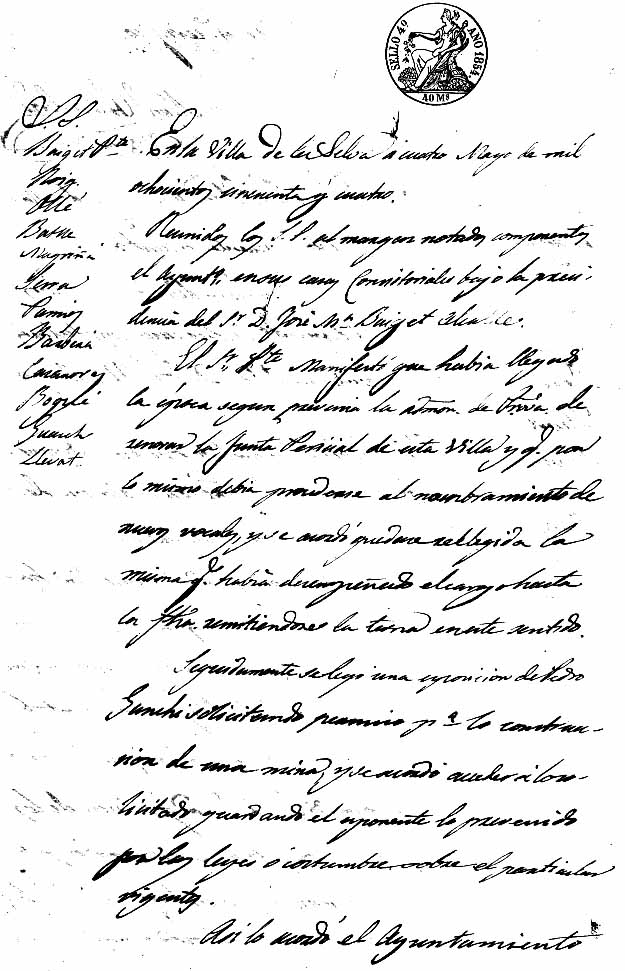 SELLO 4º AÑO 1854.
40 Ms
S.S.
Puiget Pte
Roig
Ollé
Batlle
Magriñá
Serra
Pamies
Barberá
Casanovas
Bogulé
Guasch
Llevat
En la Villa de la Selva a cuatro Mayo de mil
ochocientos cincuenta y cuatro.
Reunidos los S.S. al margen notados componentes
el Ayuntº, en sus casas Consistoriales bajo la presi-
dencia del Sr D. José Mª Puiget Alcalde.
El Sr. Pte Manifestó que habia llegado
la época segun prevenia la admon. de Prov̄a de
renovar la Junta Pericial de esta Villa y q. por
lo mismo debia procederse al nombramiento de
nuevos vocales, y se acordó quedase reelegida la
misma q. habia desempeñado el cargo hasta
la fha. remitiendose la terna en este sentido.
Seguidamente se leyó una esposicion de Pedro
Gunchi solicitando permiso pª la construc-
cion de una mina, y se acordó acceder á lo so-
licitado guardando el esponente lo prevenido
por las leyes ó costumbre sobre el particular
vigentes.
Asi lo acordó el Ayuntamiento